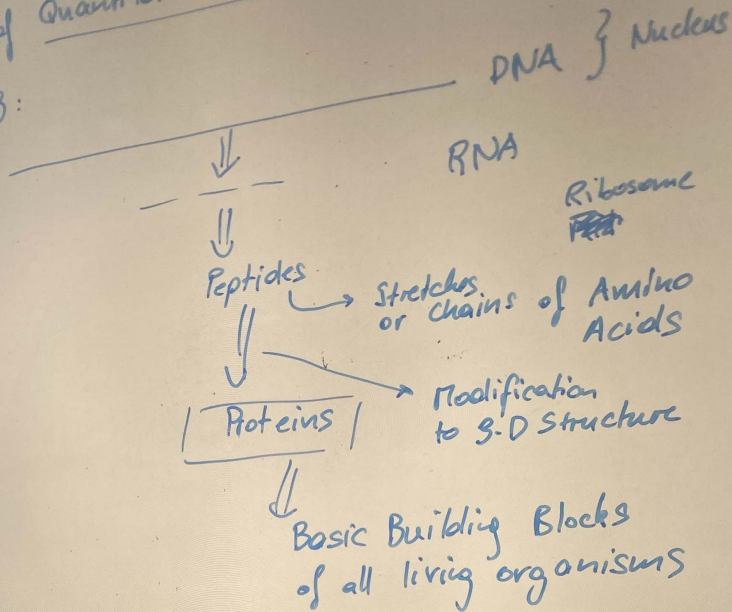 of
3:
DNA } Nucleus
RNA
Ribosome
Peptides
Stretches
or chains of Amino
Acids
Modification
to 3-D Structure
Proteins
Basic Building Blocks
of all living organisms